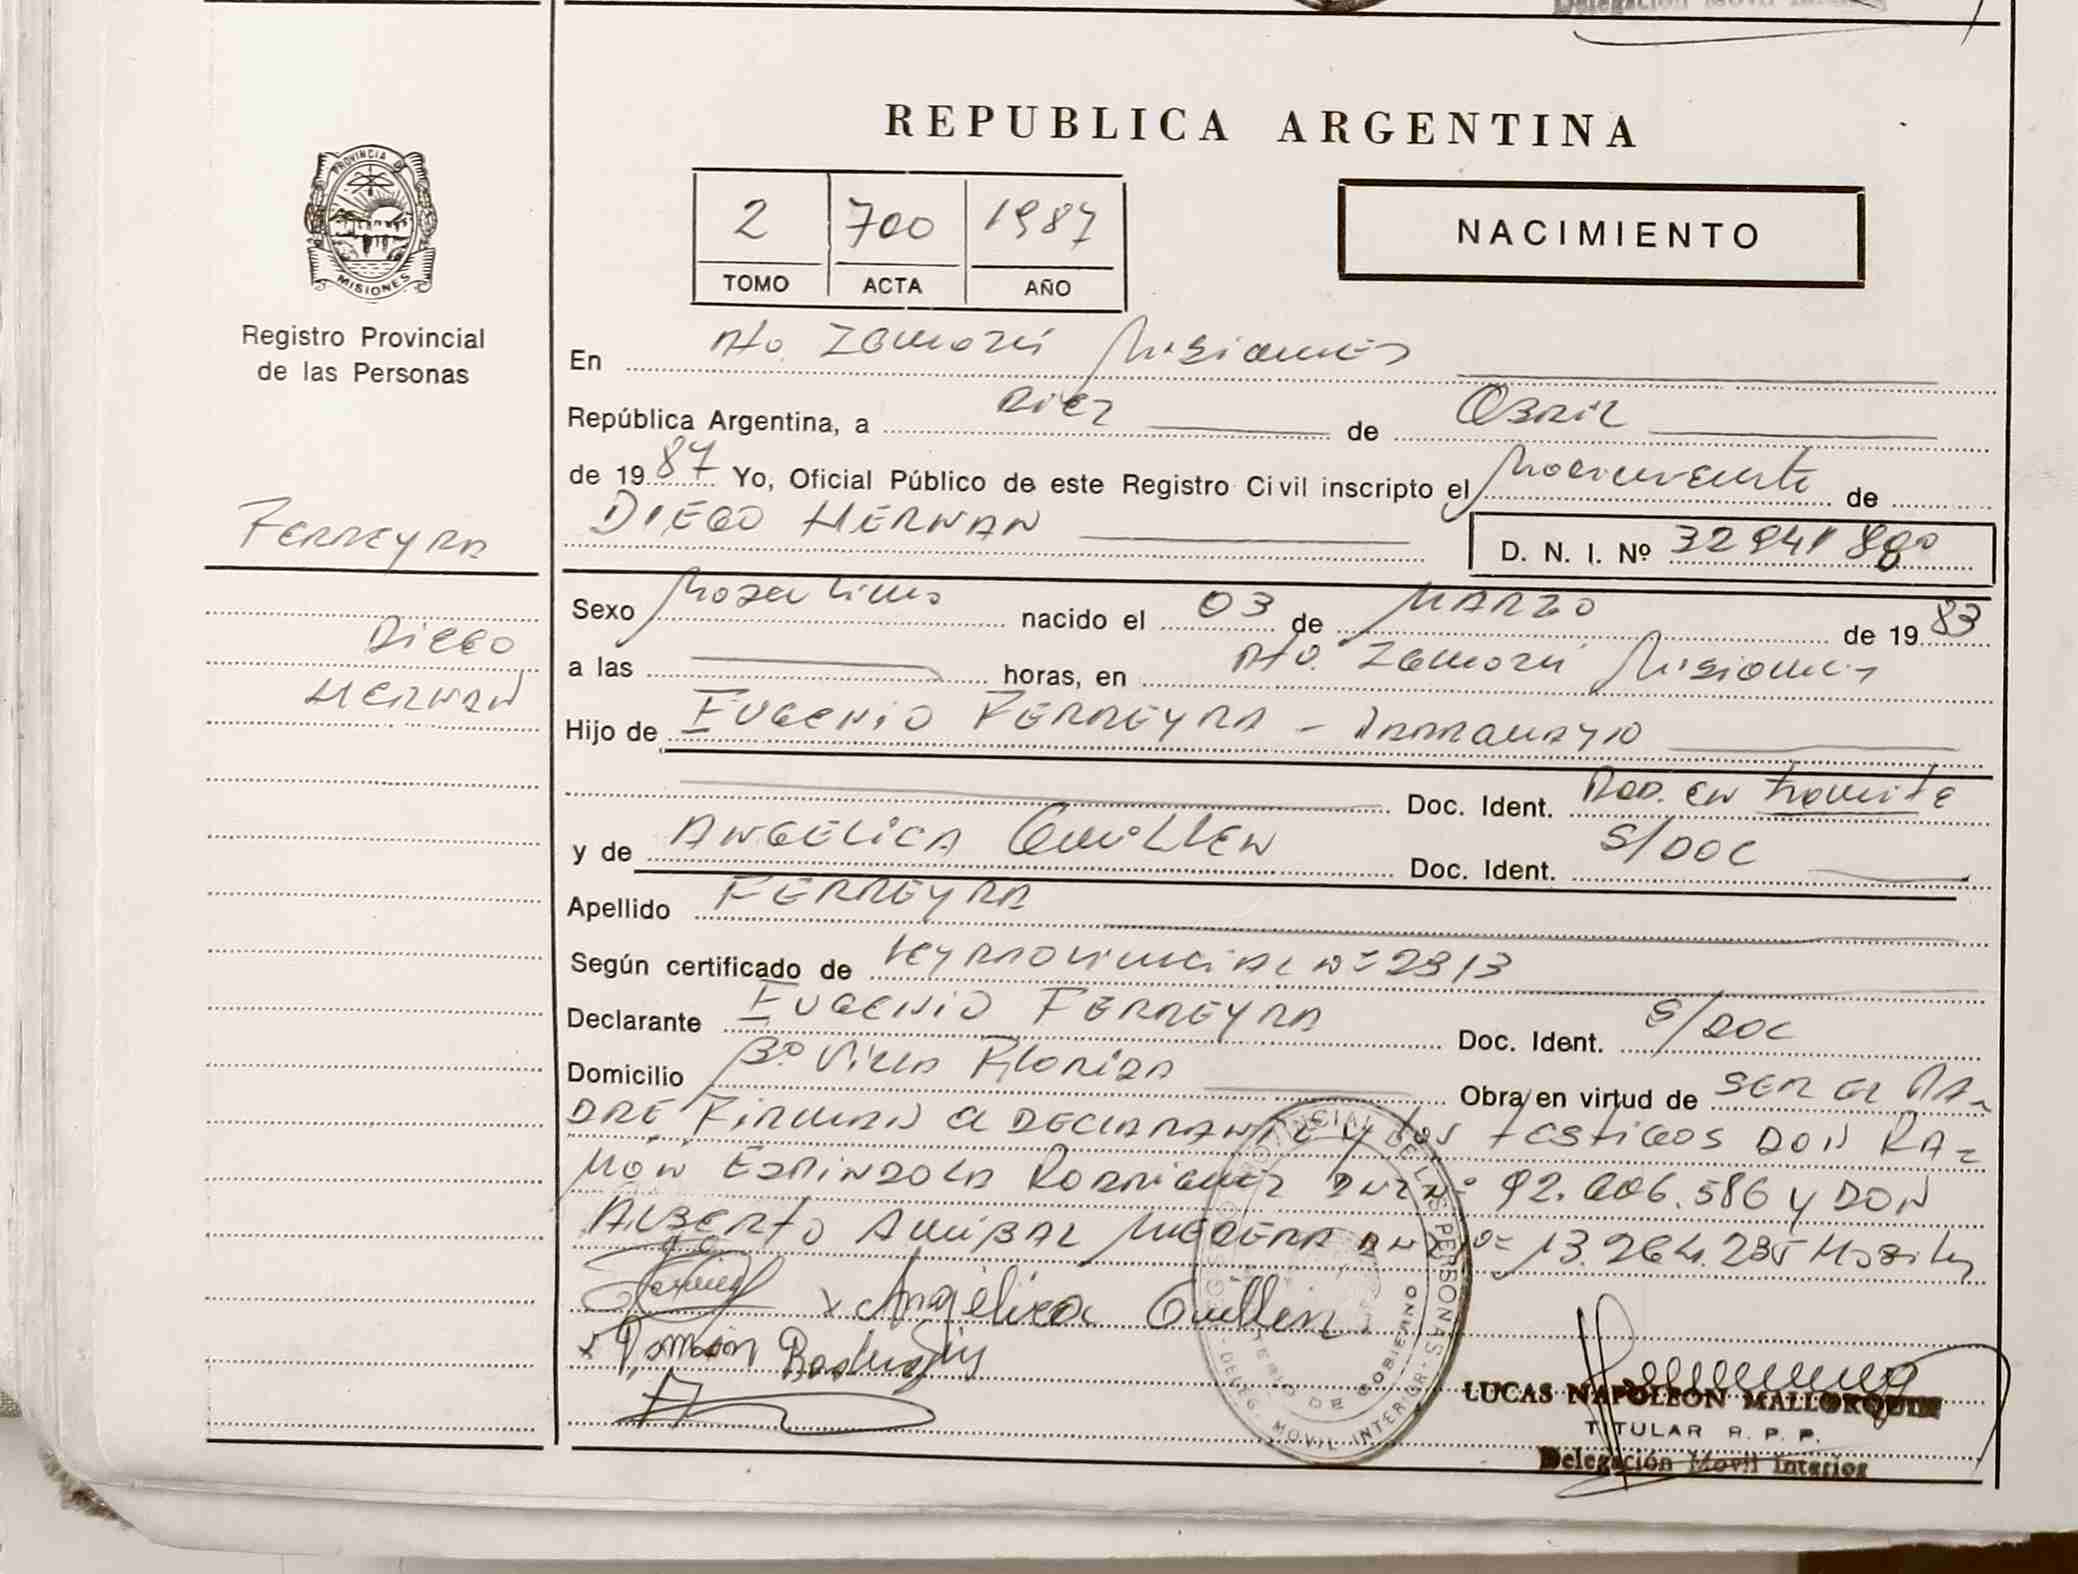 REPUBLICA ARGENTINA
PROVINCIA DE MISIONES
Registro Provincial
de las Personas
2 700 1987
TOMO ACTA AÑO
NACIMIENTO
En Pto. Iguazú Misiones
República Argentina, a Diez de Abril
de 1987 Yo, Oficial Público de este Registro Civil inscripto el Nacimiento de
DIEGO HERNAN
D. N. I. Nº 32 941 880
FERREYRA
DIEGO
HERNAN
Sexo Masculino nacido el 03 de MARZO de 1983
a las horas, en Pto. Iguazú Misiones
Hijo de EUGENIO FERREYRA - PARAGUAYO
Doc. Ident. Rad. en tramite
y de ANGELICA Guillen Doc. Ident. S/DOC
Apellido FERREYRA
Según certificado de Ley Provincial Nº 2313
Declarante EUGENIO FERREYRA Doc. Ident. S/DOC
Domicilio Bº Villa Florida Obra en virtud de SER EL PA-
DRE, Firman el DECLARANTE y los testigos DON RA-
MÓN ESPINDOLA Rodriguez DNI Nº 92.006.586 y DON
ALBERTO ANIBAL DNI Nº 13.264.285
x Angélica Guillen
x Ramón Rodriguez
REGISTRO PROVINCIAL DE LAS PERSONAS - DELEG. MOVIL INTERIOR
MINISTERIO DE GOBIERNO
LUCAS NAPOLEON MALLORQUIN
TITULAR R. P. P.
Delegación Movil Interior